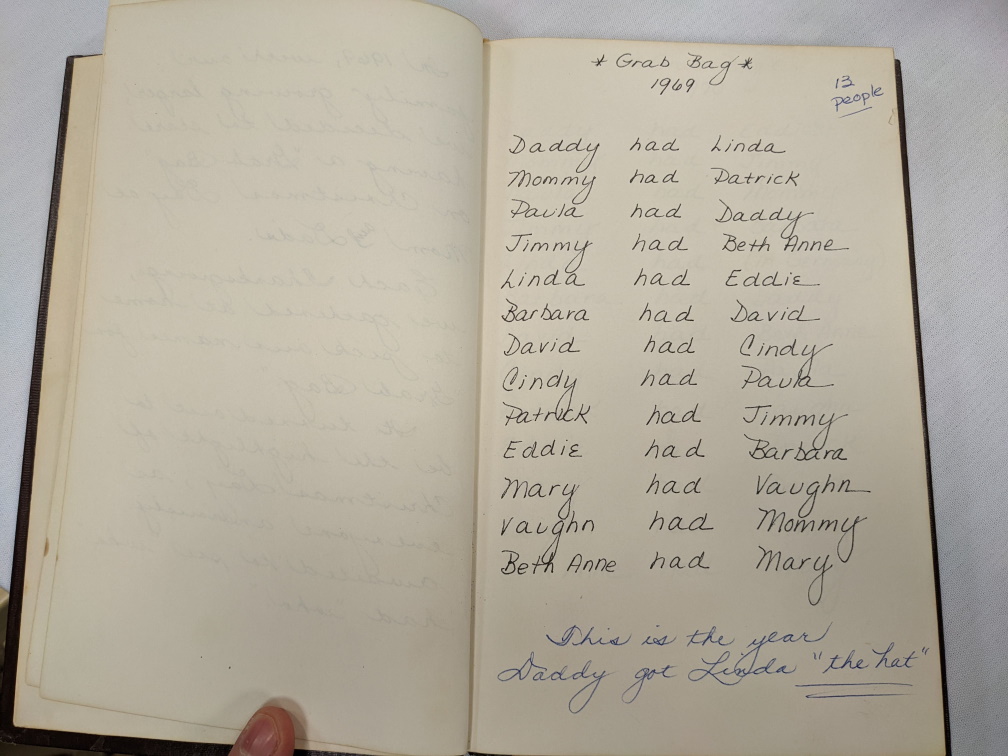 * Grab Bag *
1969
13
people
Daddy had Linda
Mommy had Patrick
Paula had Daddy
Jimmy had Beth Anne
Linda had Eddie
Barbara had David
David had Cindy
Cindy had Paula
Patrick had Jimmy
Eddie had Barbara
Mary had Vaughn
Vaughn had Mommy
Beth Anne had Mary
This is the year
Daddy got Linda "the hat"